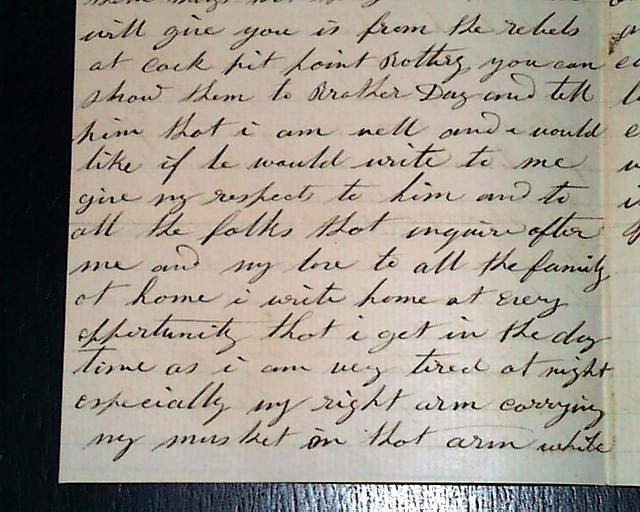 will give you is from the rebels
at cock pit point Battery you can
show them to Brother Day and tell
him that i am well and i would
like if he would write to me
give my respects to him and to
all the folks that inquire after
me and my love to all the family
at home i write home at every
oppertunity that i get in the day
time as i am very tired at night
especially my right arm carrying
my musket in that arm while